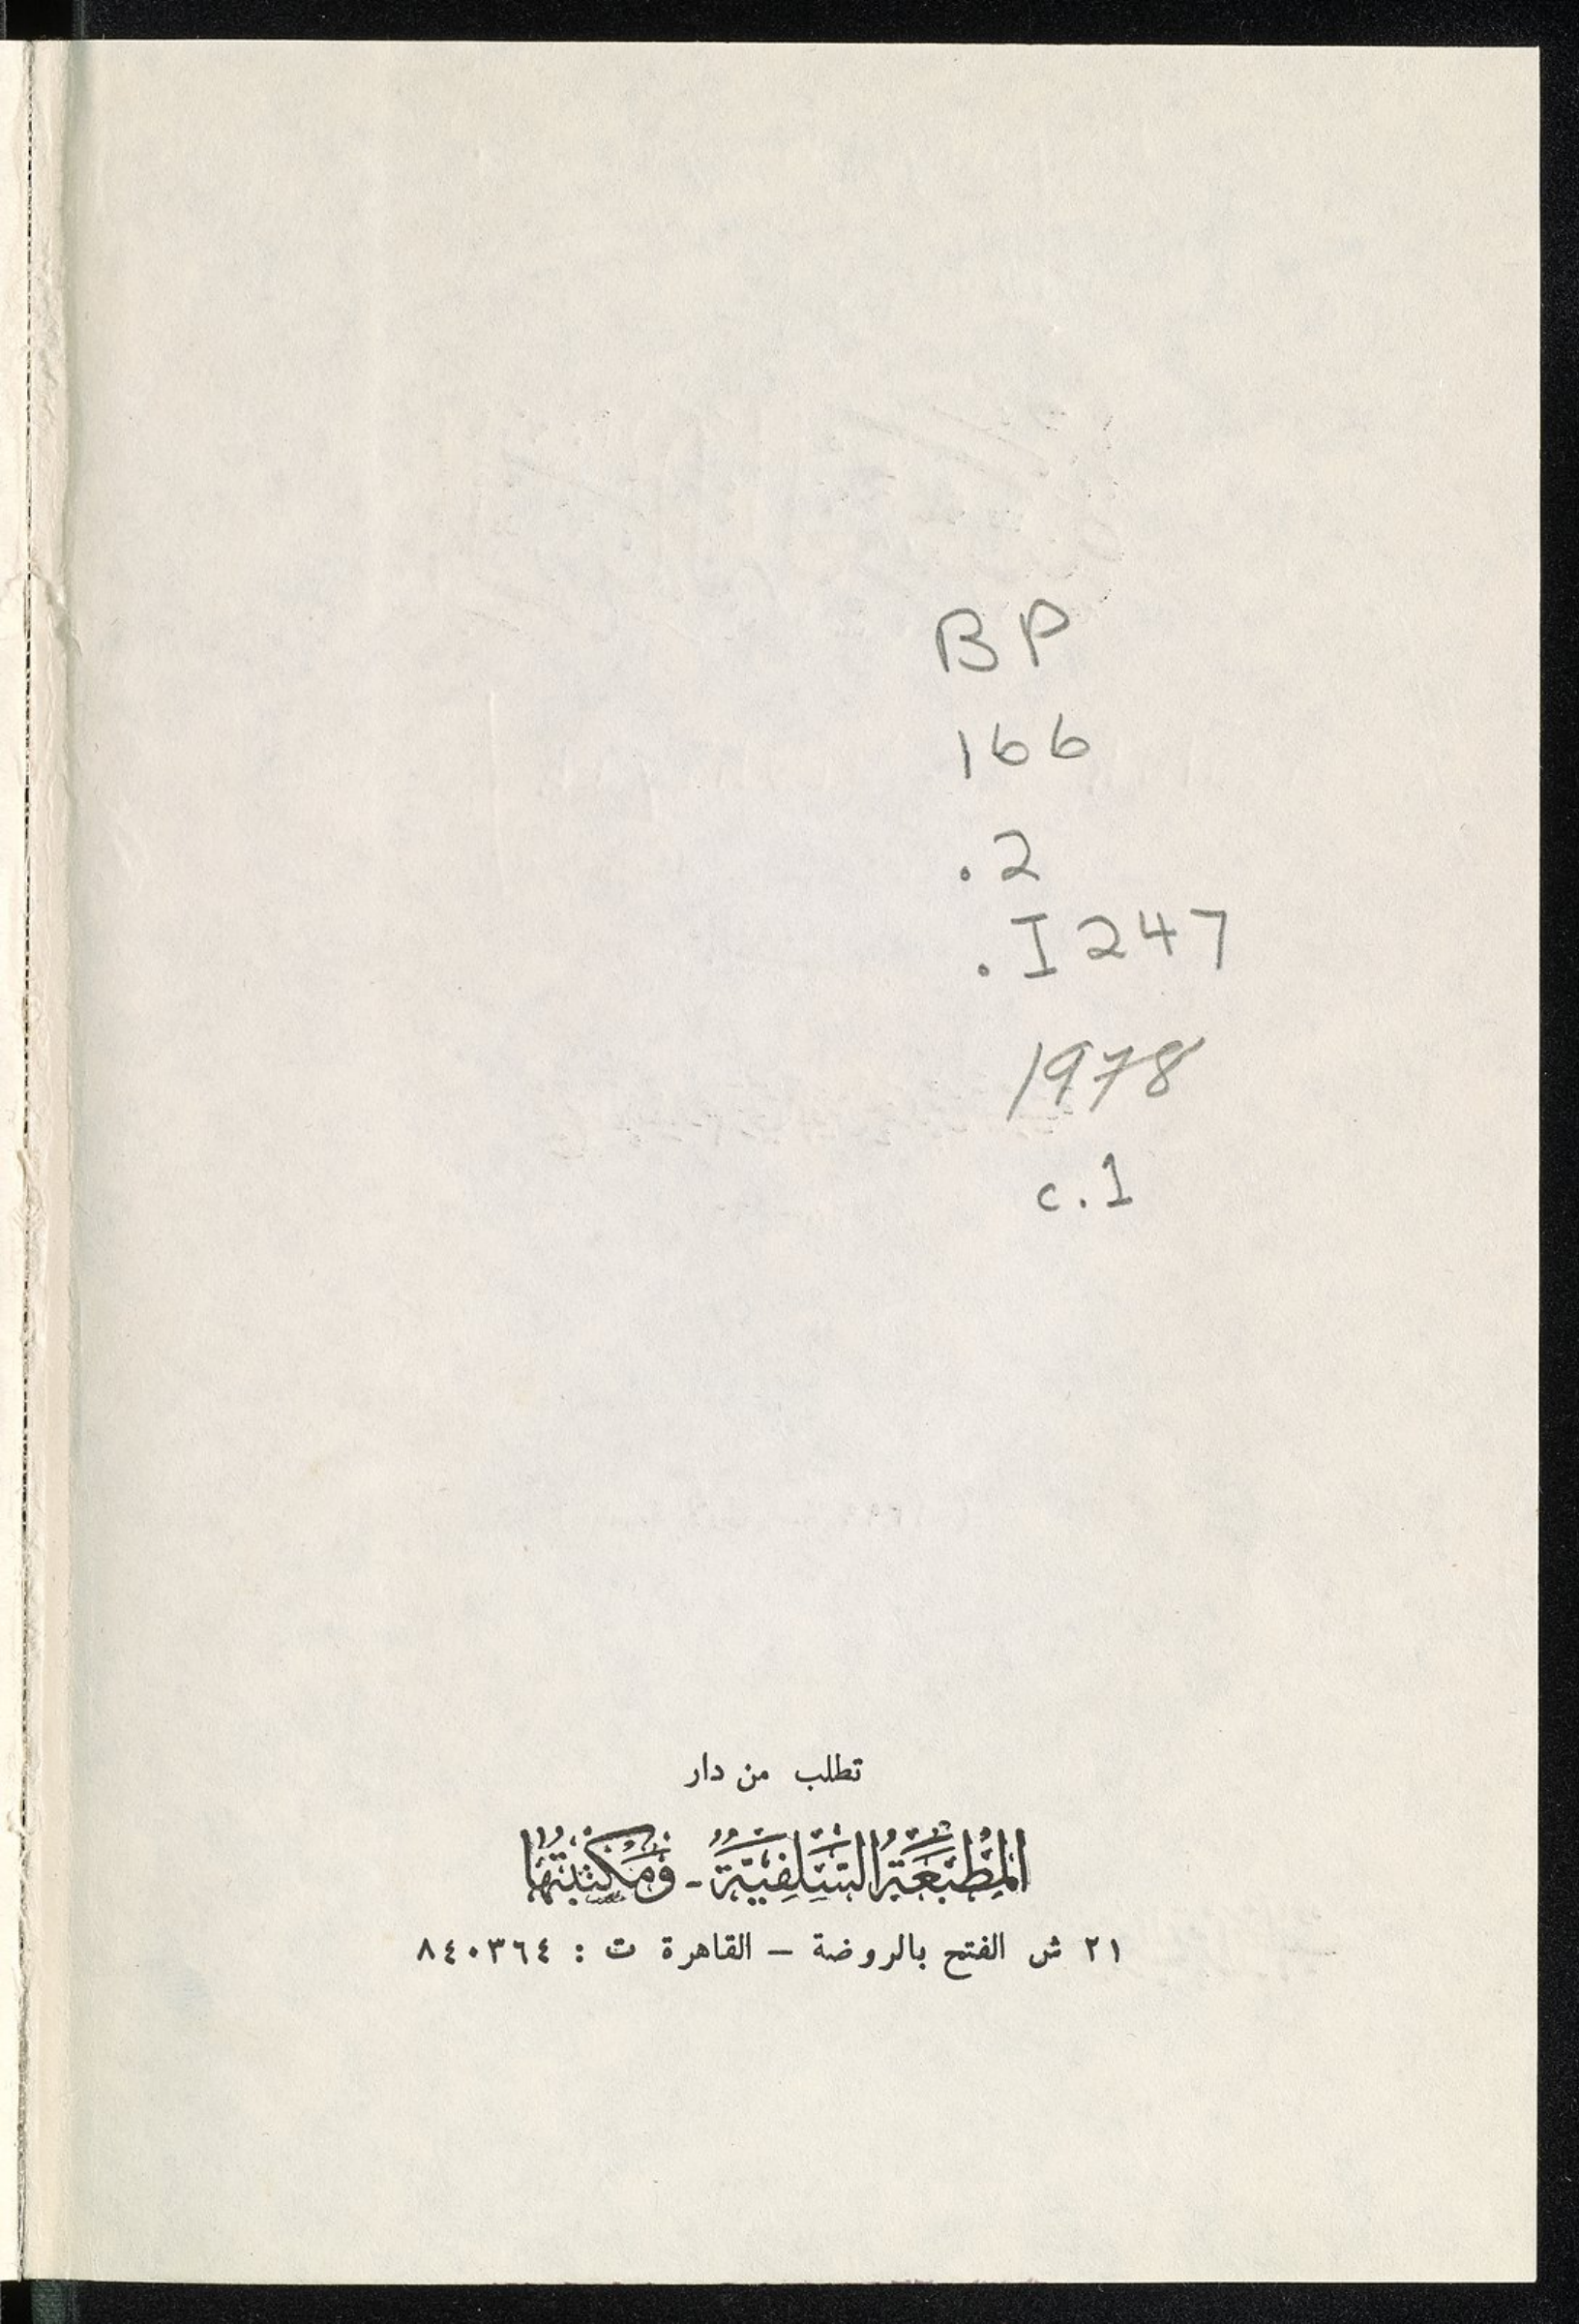 BP
166
.2
.I247
1978
c.1
تطلب من دار
المَطْبَعَةُ السَّلَفِيَّةُ - وَمَكْتَبَتُهَا
٢١ ش الفتح بالروضة – القاهرة ت : ٨٤٠٣٦٤